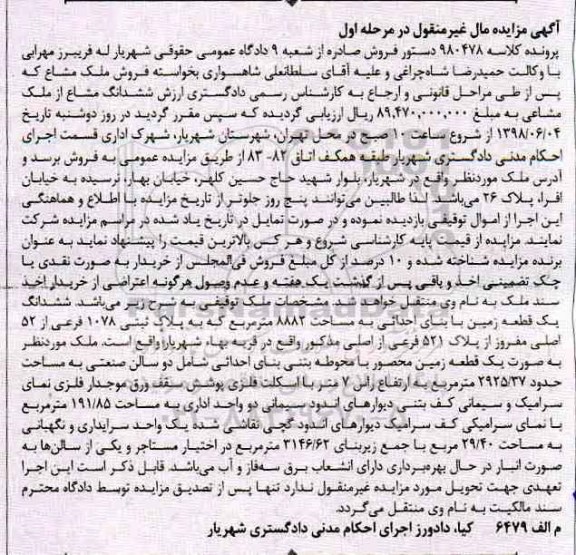 آگهی مزایده مال غیرمنقول در مرحله اول
پرونده کلاسه ۹۸۰۴۷۸ دستور فروش صادره از شعبه ۹ دادگاه عمومی حقوقی شهریار له فریبرز مهرابی
با وکالت حمیدرضا شاه‌چراغی و علیه آقای سلطانعلی شاهسواری بخواسته فروش ملک مشاع که
پس از طی مراحل قانونی و ارجاع به کارشناس رسمی دادگستری ارزش ششدانگ مشاع از ملک
مشاعی به مبلغ ۸۹,۴۷۰,۰۰۰,۰۰۰ ریال ارزیابی گردیده که سپس مقرر گردید در روز دوشنبه تاریخ
۱۳۹۸/۰۶/۰۴ از شروع ساعت ۱۰ صبح در محل تهران، شهرستان شهریار، شهرک اداری قسمت اجرای
احکام مدنی دادگستری شهریار طبقه همکف اتاق ۸۲- ۸۳ از طریق مزایده عمومی به فروش برسد و
آدرس ملک موردنظر واقع در شهریار، بلوار شهید حاج حسین کلهر، خیابان بهار، نرسیده به خیابان
افرا، پلاک ۲۶ می‌باشد. لذا طالبین می‌توانند پنج روز جلوتر از تاریخ مزایده با اطلاع و هماهنگی
این اجرا از اموال توقیفی بازدیده نموده و در صورت تمایل در تاریخ یاد شده در مراسم مزایده شرکت
نمایند. مزایده از قیمت پایه کارشناسی شروع و هر کس بالاترین قیمت را پیشنهاد نماید به عنوان
برنده مزایده شناخته شده و ۱۰ درصد از کل مبلغ فروش فی‌المجلس از خریدار به صورت نقدی یا
چک تضمینی اخذ و باقی پس از گذشت یک هفته و عدم وصول هرگونه اعتراضی از خریدار اخذ
سند ملک به نام وی منتقل خواهد شد. مشخصات ملک توقیفی به شرح زیر می‌باشد. ششدانگ
یک قطعه زمین با بنای احداثی به مساحت ۸۸۸۲ مترمربع که به پلاک ثبتی ۱۰۷۸ فرعی از ۵۲
اصلی مفروز از پلاک ۵۲۱ فرعی از اصلی مذکور واقع در قریه بهار شهریار واقع است. ملک موردنظر
به صورت یک قطعه زمین محصور با محوطه بتنی بنای احداثی شامل دو سالن صنعتی به مساحت
حدود ۲۹۲۵/۳۷ مترمربع به ارتفاع رانی ۷ متر با اسکلت فلزی پوشش سقف ورق موجدار فلزی نمای
سرامیک و سیمانی کف بتنی دیوارهای اندود سیمانی دو واحد اداری به مساحت ۱۹۱/۸۵ مترمربع
با نمای سرامیکی کف سرامیک دیوارهای اندود گچی نقاشی شده یک واحد سرایداری و نگهبانی
به مساحت ۲۹/۴۰ مربع با جمع زیربنای ۳۱۴۶/۶۲ مترمربع در اختیار مستاجر و یکی از سالن‌ها به
صورت انبار در حال بهره‌برداری دارای انشعاب برق سه‌فاز و آب می‌باشد. قابل ذکر است این اجرا
تعهدی جهت تحویل مورد مزایده غیرمنقول ندارد تنها پس از تصدیق مزایده توسط دادگاه محترم
سند مالکیت به نام وی منتقل می‌گردد.
م الف ۶۴۷۹ کیا، دادورز اجرای احکام مدنی دادگستری شهریار